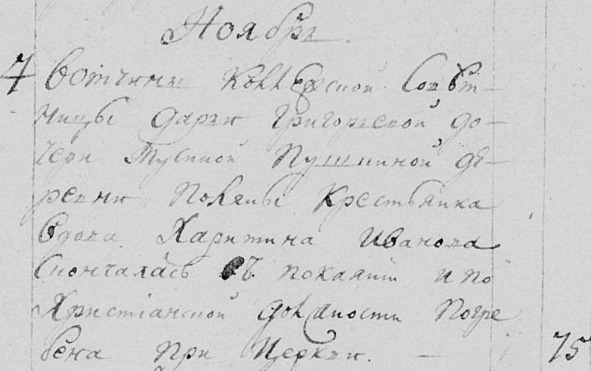 Ноября
7 Вотчины Коллежской Совѣт-
ницы Дарьи Григорьевой до-
чери Пушкиной де-
ревни Поляны Крестьянка
Вдова Харитина Иванова
скончалась въ покаянии и по
Христіанской должности погре
бена при Церкви. 75